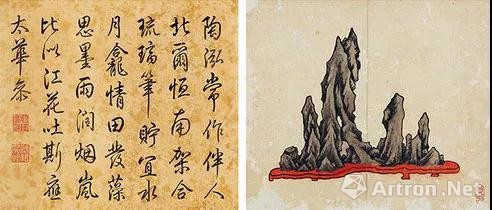 陶泓常作伴人
北爾恒南架合
琉璃筆貯宜水
月龕情田發藻
思墨雨潤烟嵐
比似江花吐斯應
太華叅
Artron.Net